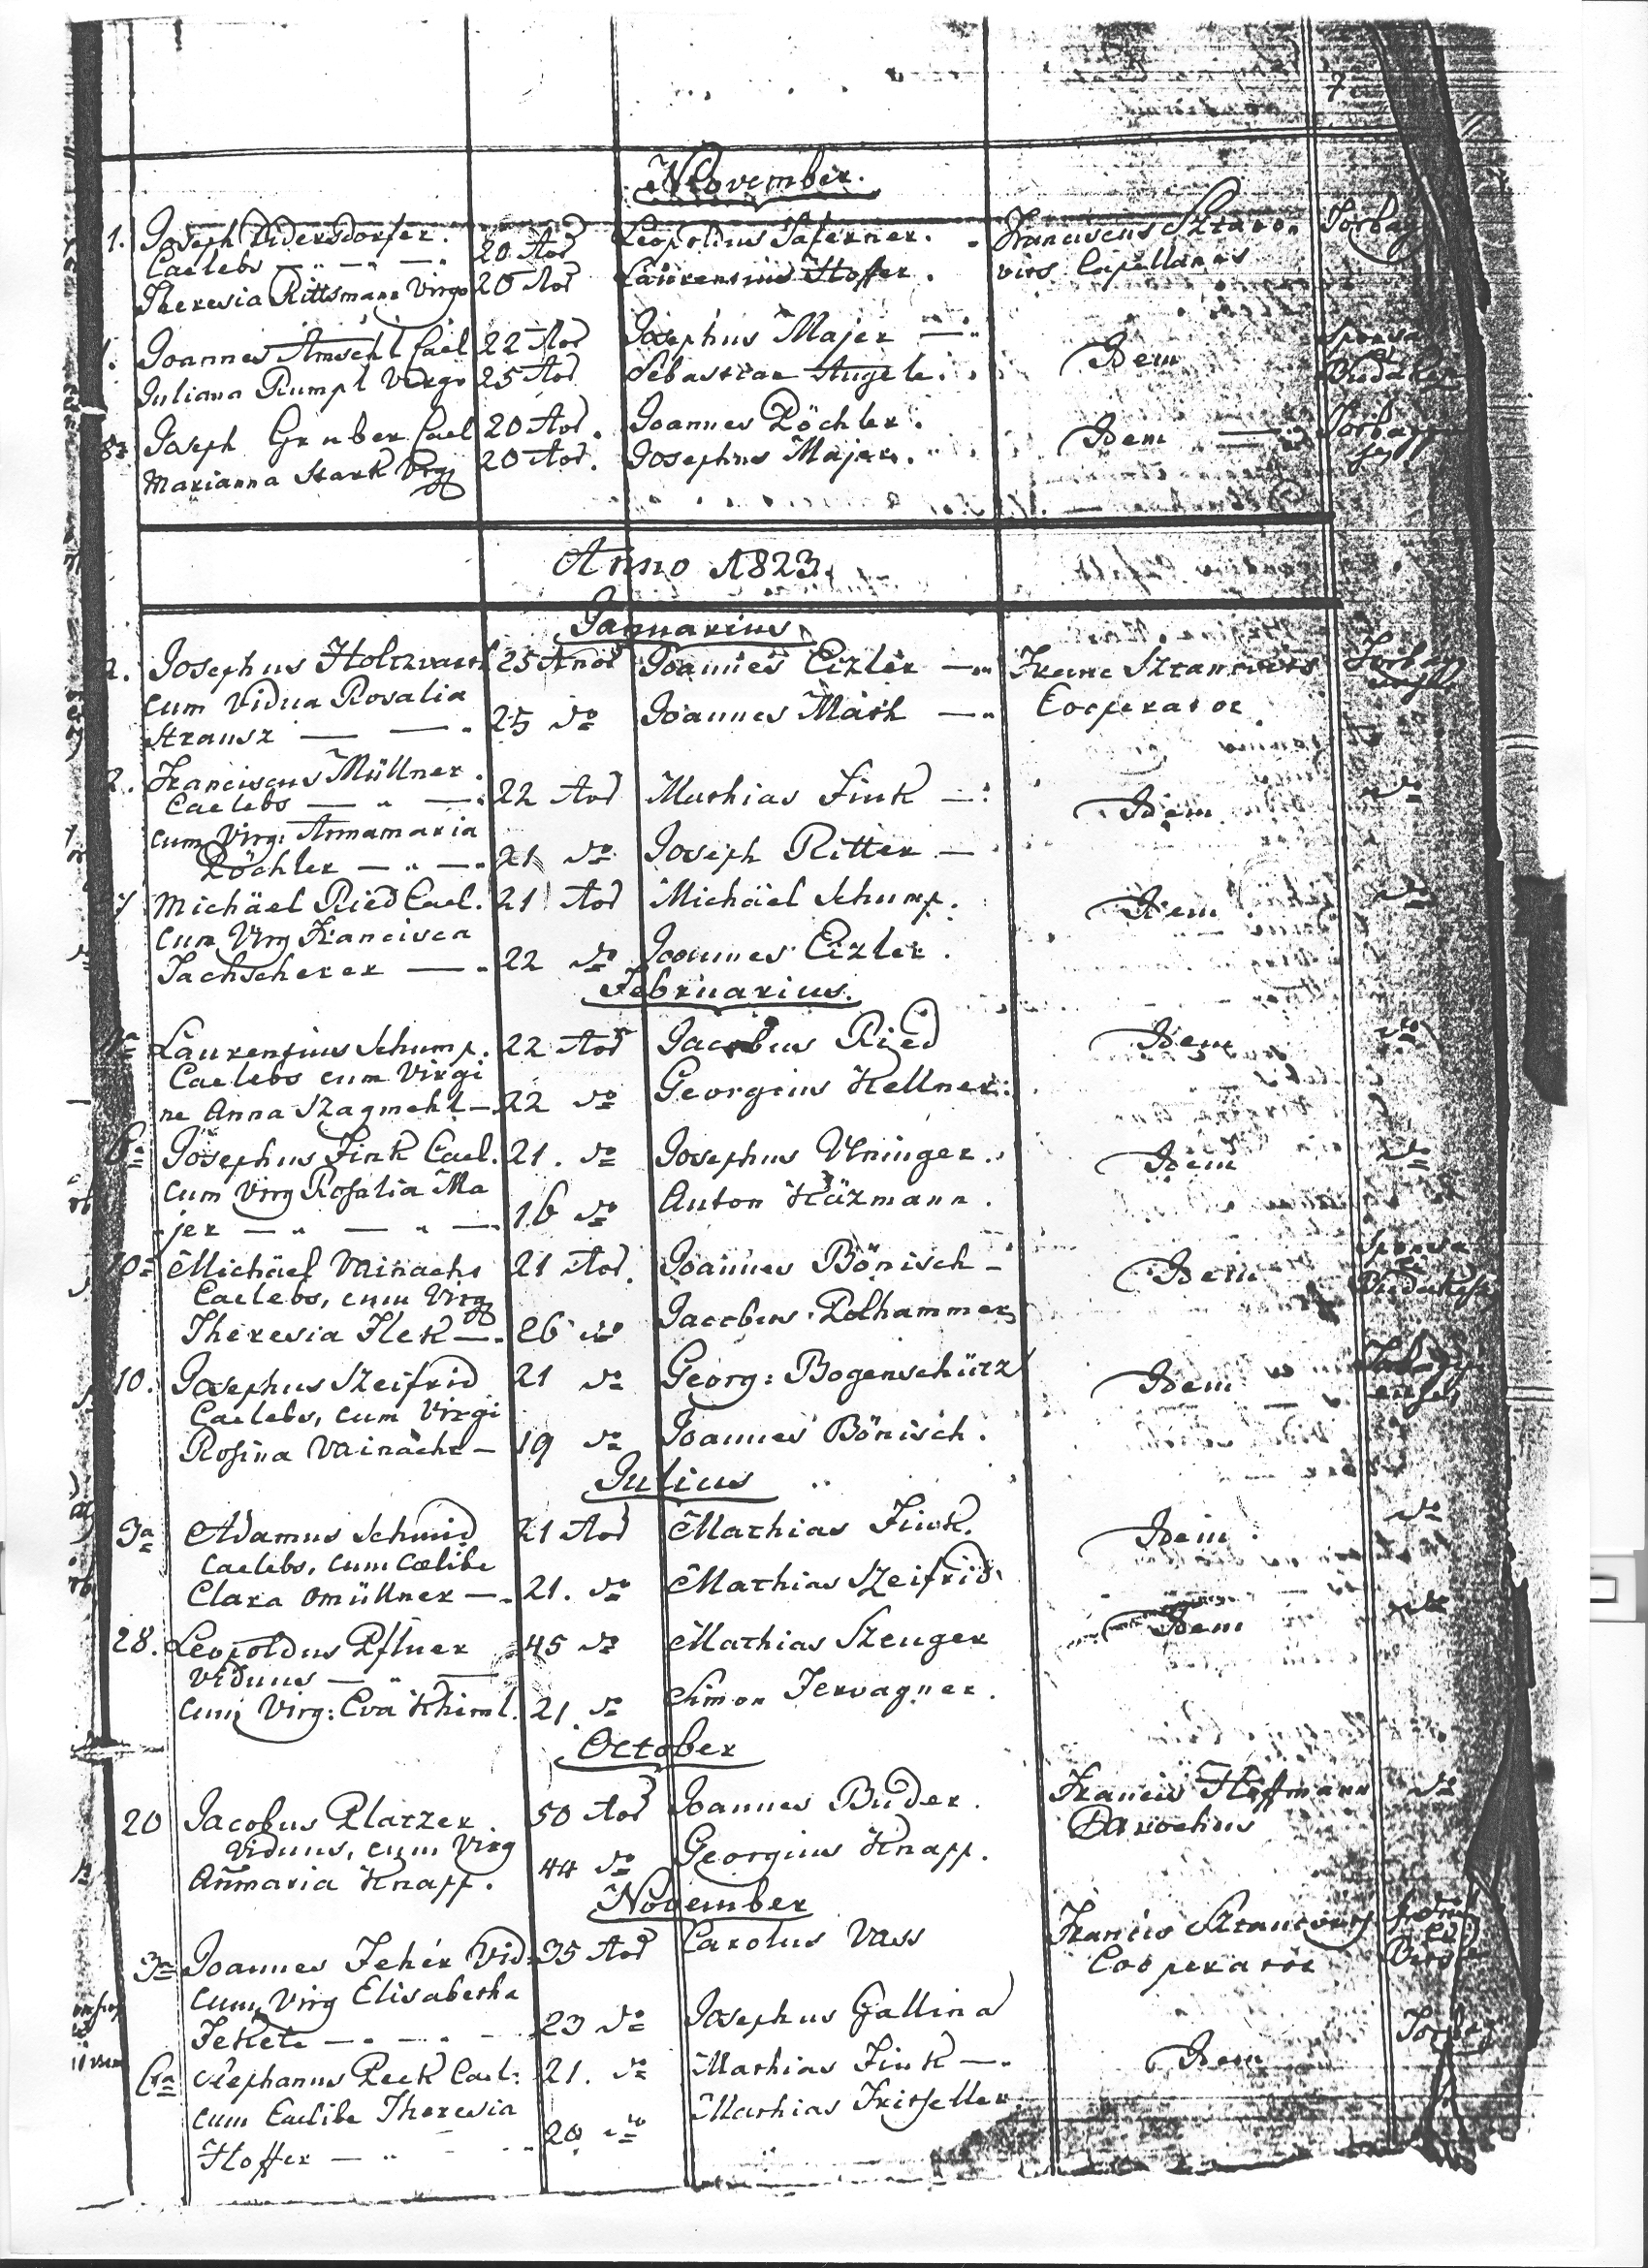 7
November.
1. Joseph Vidersdorfer. 20 Aor Leopoldus Saferner. Franciscus Sztano Torbag
Caelebs vics Capellanus
Theresia Rittsmann Virgo 20 Aor Laurensius Hoffer.
1. Joannes Amsehl Cael 22 Aor Josephus Majer Idem Sponsa
Juliana Rumpl Virgo 25 Aor Sebastian Augele. et
Joseph Gruber Cael 20 Aor. Joannes Pöchler. Idem
Marianna Stark Virg 20 Aor. Josephus Majer.
Anno 1823.
Januarius
2. Josephus Holtzvarth 25 Anor Joannes Eizler Franc Sztanovits
cum Vidua Rosalia Cooperator
Strausz 25 do Joannes Math
2. Franciscus Müllner. 22 Aor Mathias Fink Idem do
Caelebs
cum Virg: Annamaria
Pöchler 21 do Joseph Ritter
Michäel Ried Cael. 21 Aor Michäel Schump. Idem do
cum Virg Francisca
Tachscherer 22 do Joannes Eizler.
Februarius.
Laurensius Schump. 22 Aor Jacobus Ried Idem do
Caelebs cum Virgi
ne Anna Szagmehl 22 do Georgius Kellner.
6a Josephus Fink Cael. 21. do Josephus Uninger. Idem do
cum Virg Rosalia Ma
jer 16 do Anton Häzmann.
10a Michäel Vainacht 21 Aor. Joannes Bönisch Idem Sponsa
Caelebs, cum Virg
Theresia Flek 26 do Jacobus Polhammer
10. Josephus Szeifrid 21 do Georg: Bogenschütz Idem
Caelebs, cum Virgi
Rosina Vainacht 19 do Joannes Bönisch.
Julius
3a Adamus Schmid 21 Aor Mathias Fink. Idem do
Caelebs, cum Coelibe
Clara Müllner 21. do Mathias Szeifrid
28. Leopoldus Pfluer 45 do Mathias Szenger Idem do
Viduus
cum Virg: Eva Khiml. 21. do Simon Tervagner.
October
20 Jacobus Platzer. 50 Aor Joannes Buder. Francis Hoffmann do
Viduus, cum Virg Parochus
Anmaria Knapp. 44 do Georgius Knapp.
November
3a Joannes Fehér Vid. 35 Aor Carolus Vass Francis Sztanovits
cum Virg Elisabetha Cooperator
Fekete 23 do Josephus Gallina
6a Stephanus Peck Cael: 21. do Mathias Fink Idem Torbag
cum Caelibe Theresia
Hoffer 20 do Mathias Fritseller.